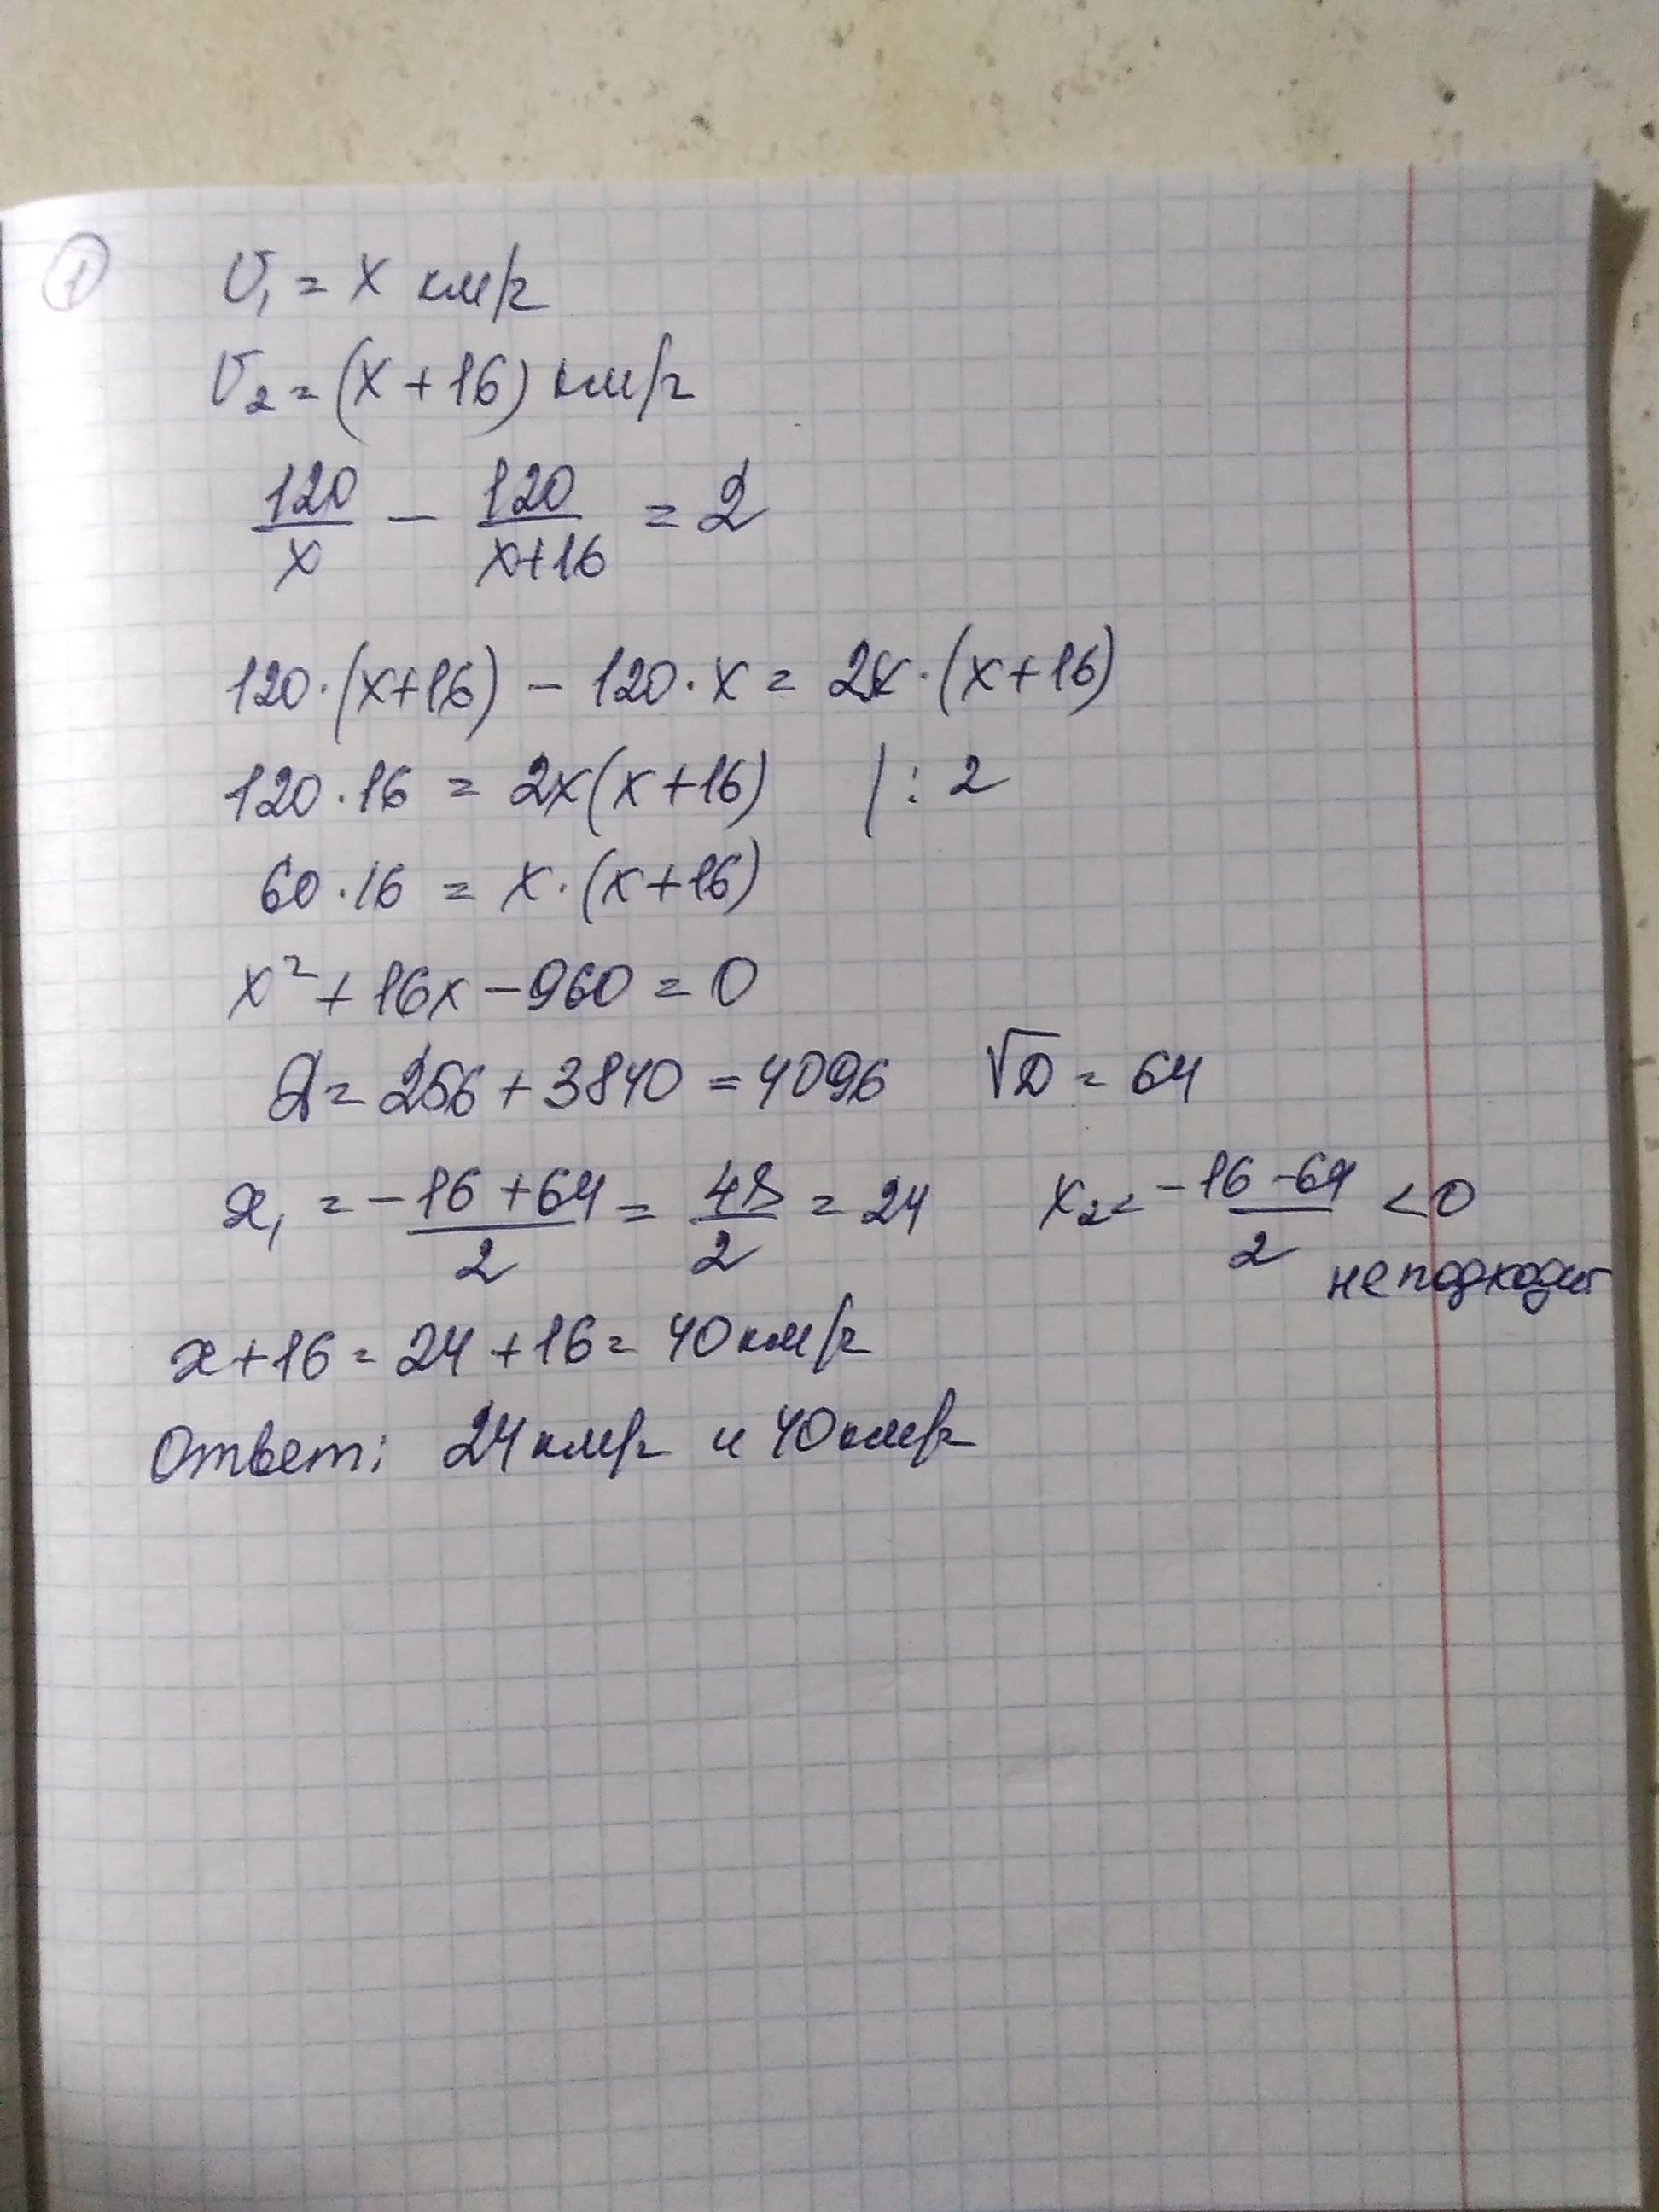 1
υ₁ = x км/ч
υ₂ = (x + 16) км/ч
120/x − 120/(x+16) = 2
120·(x+16) − 120·x = 2x·(x+16)
120·16 = 2x(x+16) | : 2
60·16 = x·(x+16)
x² + 16x − 960 = 0
D = 256 + 3840 = 4096 √D = 64
x₁ = (−16 + 64)/2 = 48/2 = 24 x₂ = (−16 − 64)/2 < 0
не подходит
x + 16 = 24 + 16 = 40 км/ч
Ответ: 24 км/ч и 40 км/ч